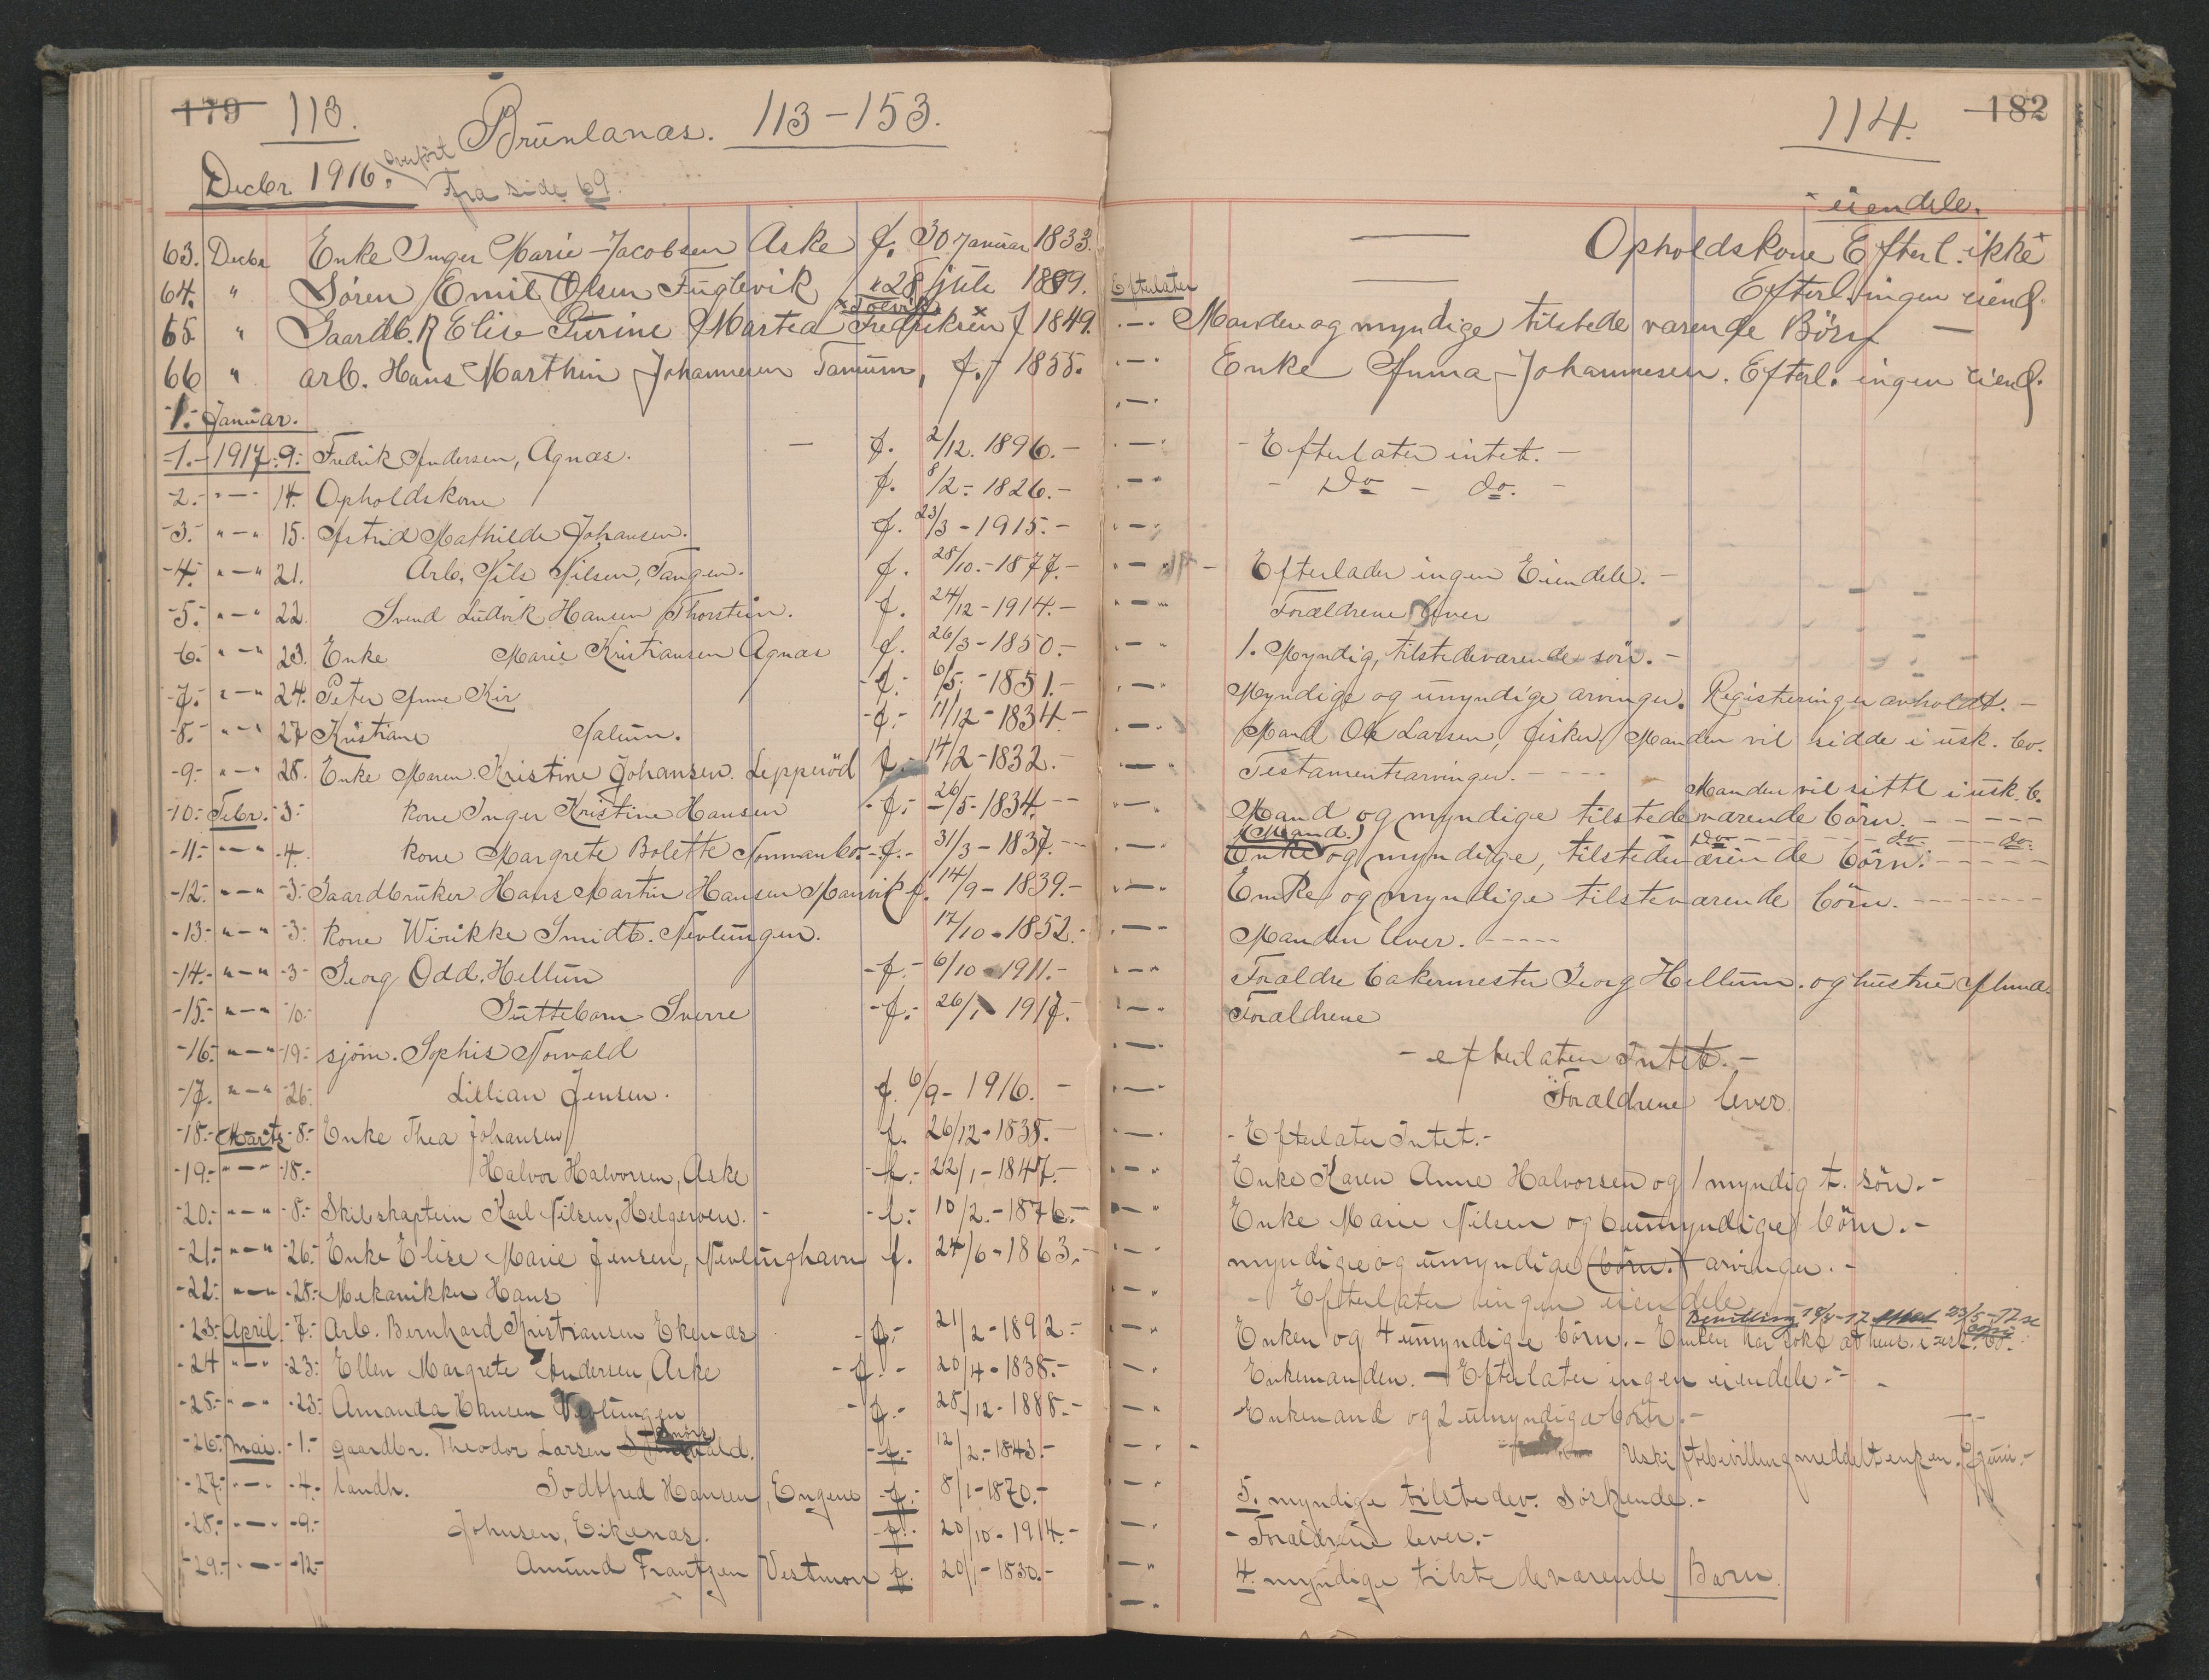 179 113. Brunlanæs. 113-153.
Decbr 1916. overført fra side 69.
63. Decbr Enke Inger Marie Jacobsen Aske f. 30 Januar 1833.
64. " Søren Emil Olsen Fuglevik " 28 juli 1889.
65. " Gaardb. Elise Turine Martea Fredriksen f 1849.
66 " arb. Hans Marthin Johannesen Tanum, f. 1855.
-1.- Januar.
-1.- 1917.- 9.- Fredrik Andersen, Agnæs. — f. 2/12. 1896.-
-2.- "-" 14. Opholdskone f. 8/2.- 1826.-
-3.- "-" 15. Astrid Mathilde Johansen. f. 23/3 - 1915.-
-4.- "-" 21. Arb. Nils Nilsen, Tangen. f. 28/10.- 1877.-
-5.- "-" 22. Svend Ludvik Hansen Thorstein. f. 24/12 - 1914.-
-6.- "-" 23. Enke Marie Kristiansen Agnæs f. 26/3 - 1850.-
-7.- "-" 24. Peter Anne Kir f. 6/5.- 1851.-
-8.- "-" 27 Kristiane Nalum. f.- 11/12 - 1834.-
-9.- "-" 28. Enke Maren Kristine Johansen. Lepperöd f.- 14/2 - 1832.-
-10.- Febr. -3.- kone Inger Kristine Hansen -f.- 26/5 - 1834.--
-11.- "-" -4. kone Margrete Bolette -f.- 31/3 - 1837.--
-12.- "-" -3.- Gaardbruker Hans Martin Hansen Manvik f. 14/9 - 1839.-
-13.- "-" -3.- kone Wirikke Smidt. Nevlungen. 17/10 - 1852.-
-14.- "-" -3- Georg Odd. Hellum -f.- 6/10 - 1911.-
-15.- "-" -10.- Guttebarn Sverre -f.- 26/1 1917.-
-16.- "-" -19.- sjöm. Sophis Norvald
-17. "-" -26.- Lillian Jensen. f. 6/9 - 1916. -
-18.- Marts -8.- Enke Thea Johansen f. 26/12 - 1838.-
-19.- "-" -18.- Halvor Halvorsen, Aske -f.- 22/1 - 1847.-
-20.- "-" -8.- Skibskaptein Karl Nilsen, Helgeroen. -f.- 10/2.- 1876.-
-21.- "-" -26.- Enke Elise Marie Jensen, Nevlunghavn f. 24/6 - 1863.-
-22.- "-" -28.- Mekanikker Hans
-23.- April. -7.- Arb. Bernhard Kristiansen Ekenæs -f.- 21/2 - 1892.-
-24 "-" -23.- Ellen Margrete Andersen, Aske -f.- 20/4 - 1838.-
-25.- "-" -23.- Amanda Hansen Nevlungen -f.- 28/12 - 1888.-
-26.- Mai. -1.- gaardbr. Theodor Larsen -f.- 12/2.- 1843.-
-27.- "-" -4.- landh. Godtfred Hansen, Engene -f.- 8/1 - 1870.-
-28.- "-" -9.- Johnsen, Eikenæs. -f.- 20/10 - 1914.-
-29.- "-" -12.- Amund Frantzen Vestmon f. 20/1 - 1830.-
114. 182
eiendele.
— Opholdskone Efterl. ikke
Efterlater — Efterl. ingen eiend.
Manden og myndige tilstedeværende Börn —
Enke Anna Johannesen. Efterl. ingen eiend.
- Efterlater intet. -
- Do - do. -
Efterlader ingen Eiendele. -
Forældrene lever
1. Myndig, tilstedeværende sön. -
Myndige og umyndige arvinger. Registeringen avholdt. -
Mand Ole Larsen, fisker, Manden vil sidde i usk. bo.
Testamentsarvinger. - - - -
Manden vil sitte i usk. b.
Mand og myndige tilstedeværende börn. - - - - -
(Mand.) Do - - - do - - - do.
Enke og myndige, tilstedeværende börn. - - - - -
Enke og myndige tilsteværende börn. - - - - - - -
Manden lever. - - - -
Forældre bakermester Georg Hellum. og hustru
Forældrene
- efterlater Intet. -
Forældrene lever
- Efterlater Intet. -
Enke Karen Anne Halvorsen og 1 myndig t. sön. -
Enke Marie Nilsen og 6 umyndige börn. -
myndige og umyndige (börn.) arvinger. -
- Efterlater ingen eiendele
Bevilling 18/4-17 23/5-17 se copi
Enken og 4 umyndige börn. - Enken har sökt at hens. i usk. bo.
Enkemanden. - Efterlater ingen eiendele. -
Enkemand og 2 umyndige börn. -
Uskiftebevilling meddelt enken. 2 juni. -
5. myndige tilstedev. söskende. -
- Forældrene lever. -
4. myndige tilstedeværende Barn.